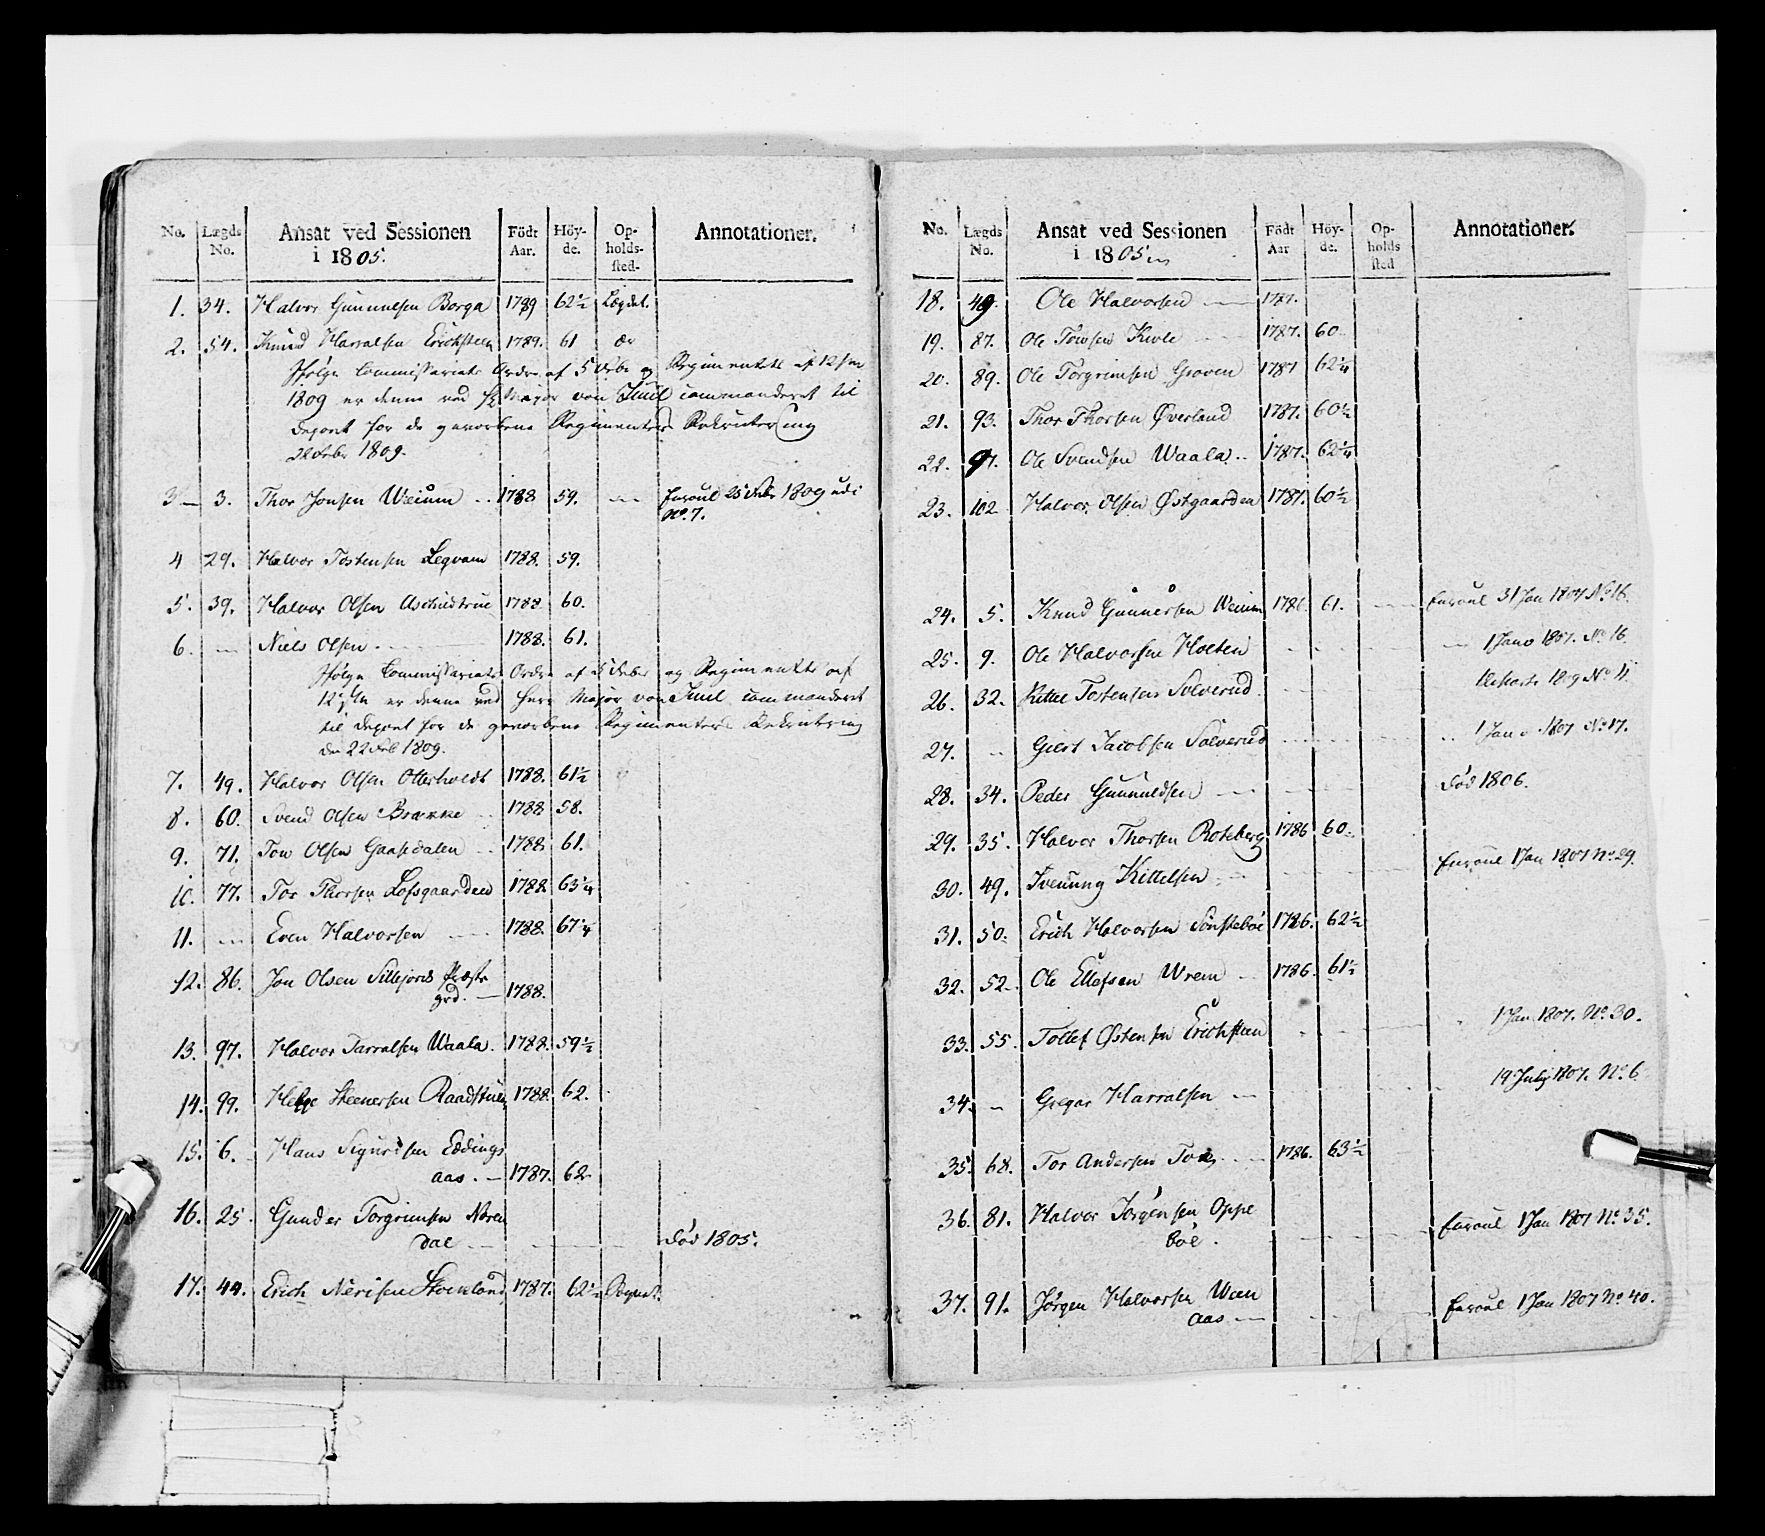 No. Lægds No. Ansat ved Sessionen i 1805. Födt Aar. Höy-de. Op-holds-sted. Annotationer.
1. 34. Halvor Gunnulsen Borga 1789 62½ Lægdet.
2. 54. Knud Harralsen Erichsteen 1789. 61
Ifølge Commissariats Ordre af 5 Febr og Regimentets af 12
1809 er denne ved Hr Major von Krul commanderet til
Depoet for de gevorbene Regimenters Rekrutering
22 Febr 1809.
3 3. Thor Jonsen Weium 1788 59. Enroul 25 Febr 1809 udi
No. 7.
4 29. Halvor Tostensen Legvam 1788. 59.
5. 39. Halvor Olsen 1788 60.
6. Niels Olsen 1788. 61.
Ifølge Commissariats Ordre af 5 Febr og Regimentets af
12 er denne ved Herr Major von commanderet
til Depoet for de gevorbene Regimenters Rekrutering
22 Feb 1809.
7. 49. Halvor Olsen Otterholdt 1788. 61½
8. 60. Svend Olsen Brække 1788 58.
9. 71. Tow Olsen Gaasedalen 1788. 61.
10. 77. Tor Thorsen Lofsgaarden 1788 63¼
11. Even Halvorsen 1788. 67¼
12. 86. Jon Olsen Sillejords Præste
grd. 1788.
13. 97. Halvor Tarralsen Waala. 1788. 59½
14. 99. Helge Steenersen 1788. 62.
15. 6. Hans Sigurdsen Eddings
aas. 1787. 62
16. 25 Gunder Torgrimsen Noren
dal Død 1805.
17. 44. Erich Nerisen 1787. 62½
No. Lægds No. Ansat ved Sessionen i 1805 Födt Aar Höy-de. Op-holds sted Annotationer.
18. 49. Ole Halvorsen 1787.
19. 87. Ole Towsen Kivle 1787. 60
20. 89. Ole Torgrimsen Groven 1787 62¼
21. 93. Thor Thorsen Øverland 1787. 60½
22. 97. Ole Svendsen Waala 1787. 62¼
23. 102 Halvor Olsen Østgaarden 1787. 60½
24. 5. Knud Gunnersen Weium 1786. 61. Enroul 31 Jan 1807 No. 16.
25. 9. Ole Halvorsen Hoeten 1 Jan 1807. No. 16
26. 32. Kittel Tostensen Solverud 1809 No. 11
27. Giert Jacobsen Solverud 1 Jan 1807 No. 17.
28. 34. Peder Gunnuldsen Død 1806.
29. 35. Halvor Thorsen Roteberg 1786 60
30. 49. Kittelsen Enroul 1 Jan 1807 No. 29.
31. 50. Erich Halvorsen Sönstebøe 1786. 62½
32. 52 Ole Ellefsen Wrem 1786. 61½
33. 55. Tollef Østensen Erichsteen 1 Jan 1807. No. 30.
34. Gregar Harralsen 19 July 1807. No. 6
35. 68. Tor Andersen 1786. 63½
36. 81. Halvor Jørgensen Oppe
bøe. Enroul 1 Jan 1807 No. 35.
37. 91. Jørgen Halvorsen
aas Enroul 1 Jan 1807 No. 40.